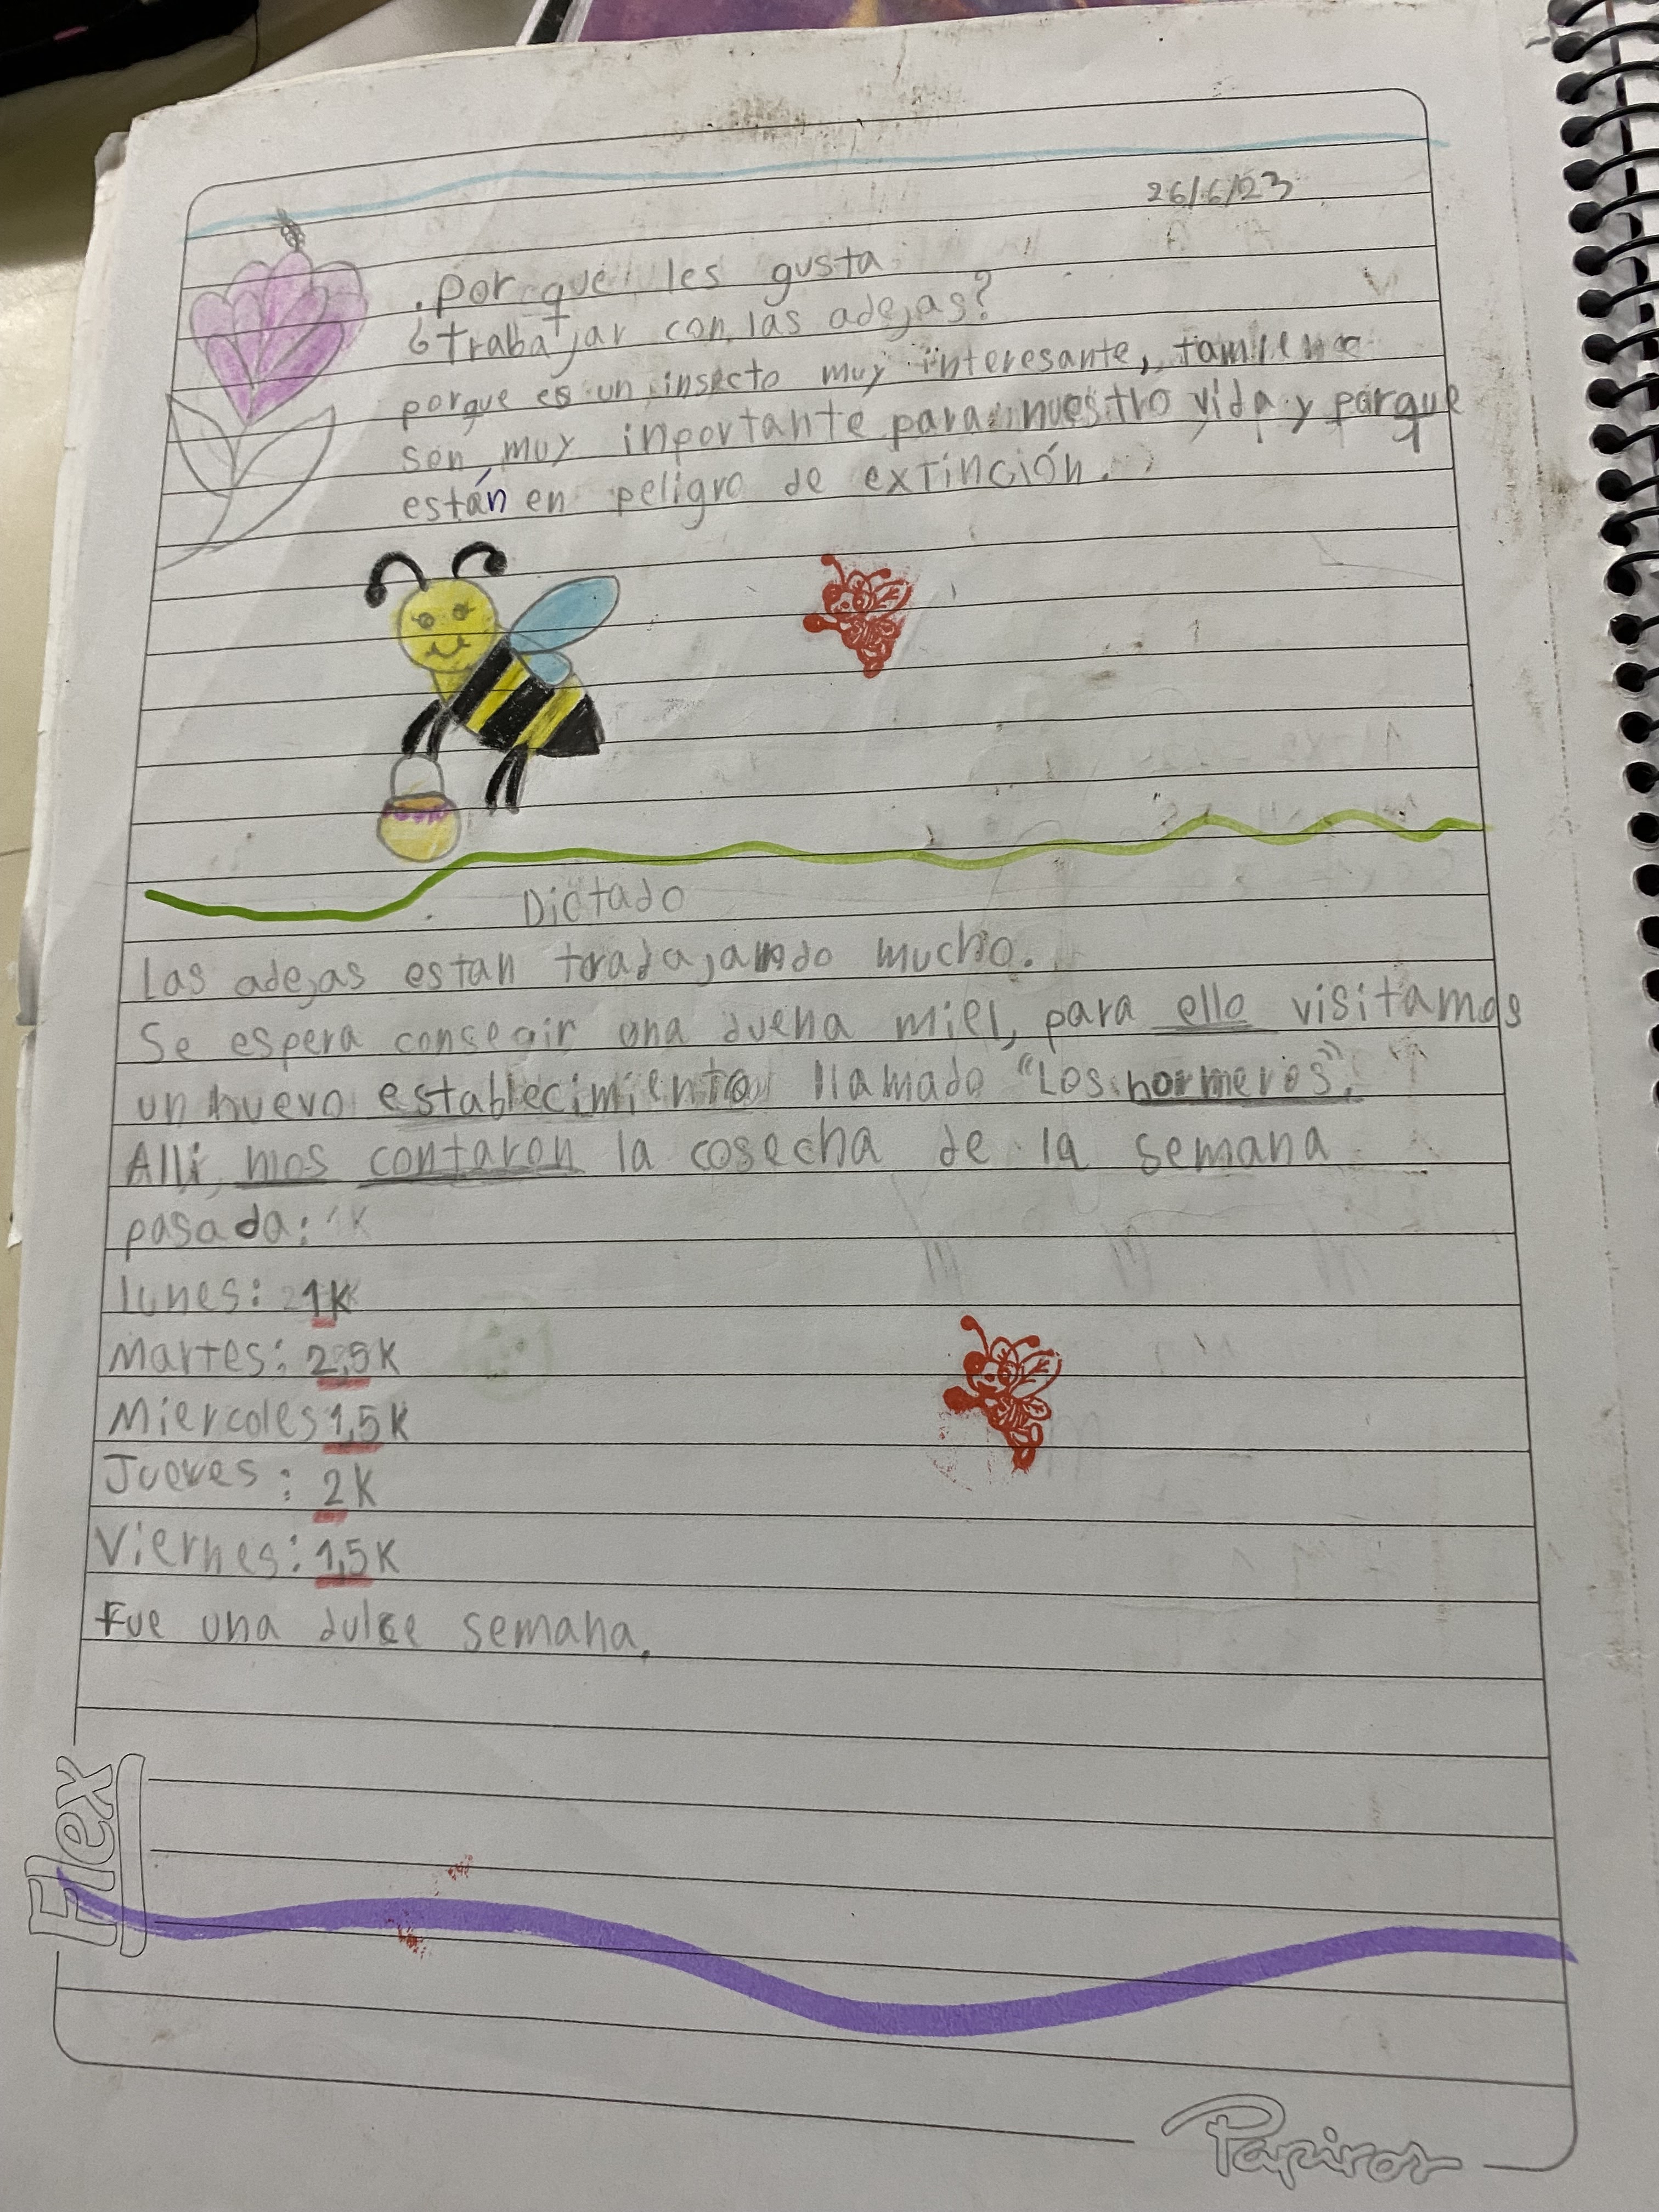 26/6/23
.Por que les gusta
¿trabajar con las adejas?
porque es un insecto muy interesante,
son muy inportante para nuestro vida y parque
están en peligro de extinción.
Dictado
Las adejas estan tradajando mucho.
Se espera consegir una duena miel, para ello visitamos
un nuevo establecimiento llamado "Los hormeros".
Alli, nos contaron la cosecha de la semana
pasada:
Lunes: 1K
Martes: 2,5K
Miercoles 1,5K
Jueves: 2K
Viernes: 1,5K
Fue una dulce semana.
Flex
Papiros